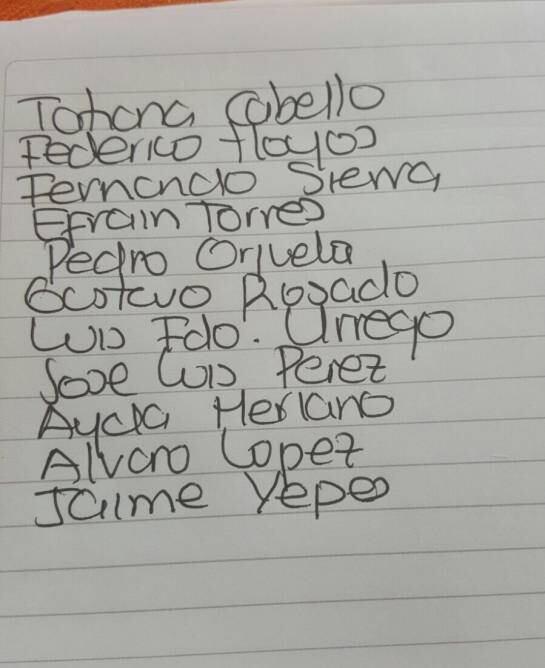 Tatiana Cabello
Federico Hoyos
Fernando Sierra
Efrain Torres
Pedro Orjuela
Gustavo Rosado
Luis Fdo. Urrego
Jose Luis Perez
Ayda Merlano
Alvaro Lopez
Jaime Yepes